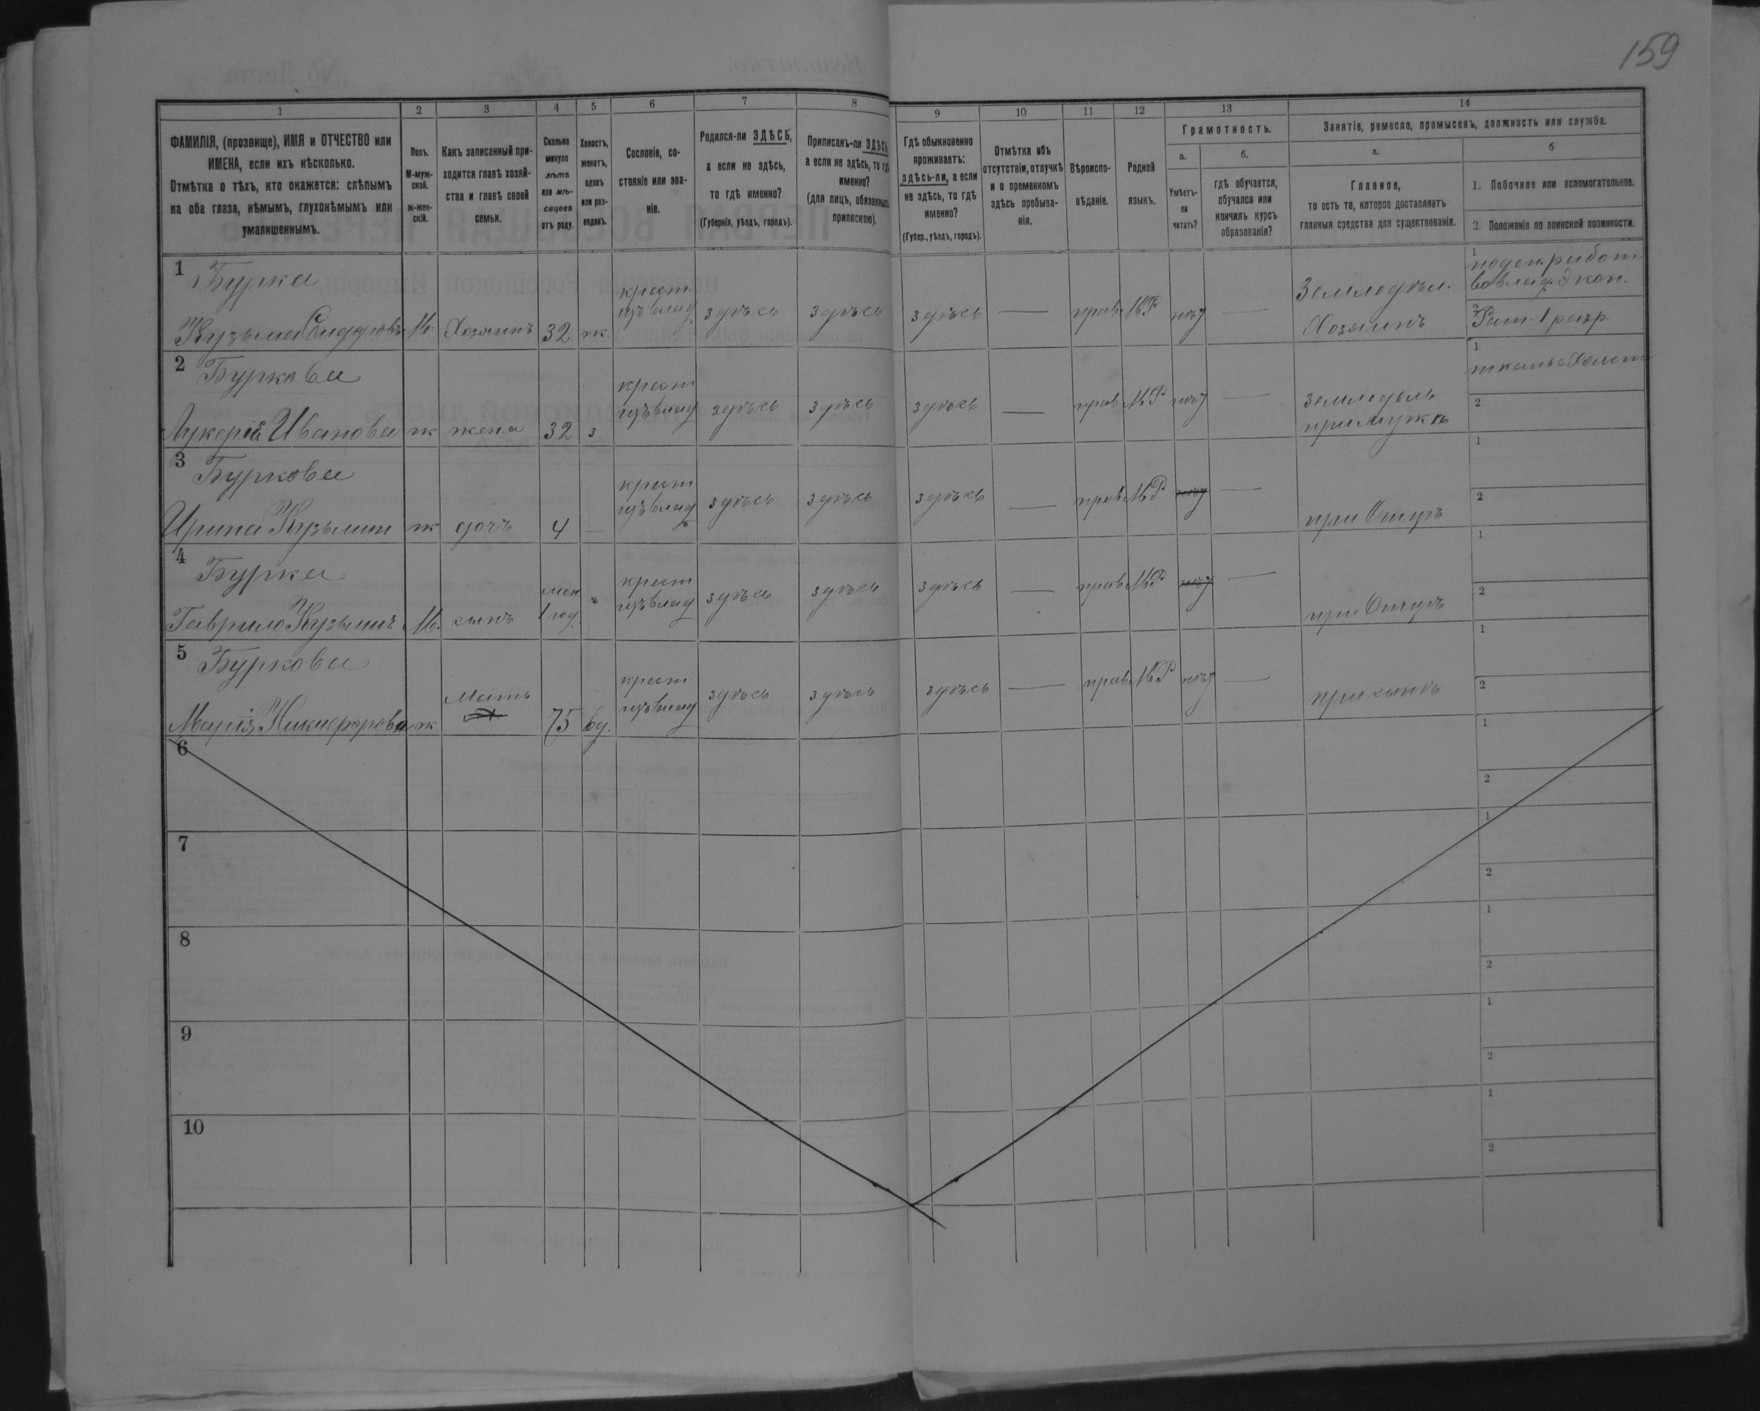 159
1 2 3 4 5 6 7 8 9 10 11 12 13 14
ФАМИЛІЯ, (прозвище), ИМЯ и ОТЧЕСТВО или
ИМЕНА, если ихъ нѣсколько.
Отмѣтка о тѣхъ, кто окажется: слѣпымъ
на оба глаза, нѣмымъ, глухонѣмымъ или
умалишеннымъ.
Полъ.
М-муж-
ской.
ж-жен-
скій.
Какъ записанный при-
ходится главѣ хозяй-
ства и главѣ своей
семьи.
Сколько
минуло
лѣтъ
или мѣ-
сяцевъ
отъ роду.
Холостъ,
женатъ,
вдовъ
или раз-
веденъ.
Сословіе, со-
стояніе или зва-
ніе.
Родился-ли ЗДѢСЬ,
а если не здѣсь,
то гдѣ именно?
(Губернія, уѣздъ, городъ).
Приписанъ-ли ЗДѢСЬ,
а если не здѣсь, то гдѣ
именно?
(для лицъ, обязанныхъ
припискою).
Гдѣ обыкновенно
проживаетъ:
здѣсь-ли, а если
не здѣсь, то гдѣ
именно?
(Губер., уѣздъ, городъ).
Отмѣтка объ
отсутствіи, отлучкѣ
и о временномъ
здѣсь пребыва-
ніи.
Вѣроиспо-
вѣданіе.
Родной
языкъ.
Грамотность.
а.
Умѣетъ-
ли
читать?
б.
гдѣ обучается,
обучался или
кончилъ курсъ
образованія?
Занятіе, ремесло, промыселъ, должность или служба.
а.
Главное,
то есть то, которое доставляетъ
главныя средства для существованія.
б
1. Побочное или вспомогательное.
2. Положеніе по воинской повинности.
1 Бурка
Кузьма М. Хозяинъ 32 ж. крест. изъ влад. здѣсь здѣсь здѣсь — прав. М.Р. нѣт — Земледѣл. Хозяинъ
1 поден. работ.
2 Рат. 1 разр.
2 Буркова
Лукерія Иванова ж жена 32 з крест изъ влад здѣсь здѣсь здѣсь — прав. М.Р. нѣт — земледѣль при мужѣ
1
2
3 Буркова
Ирина Кузьмин ж дочь 4 — крест изъ влад здѣсь здѣсь здѣсь — прав М.Р. нѣт — при Отцѣ
1
2
4 Бурка
Гаврило Кузьмич М. сынъ мен 1 год крест изъ влад здѣсь здѣсь здѣсь — прав М.Р. нѣт — при Отцѣ
1
2
5 Буркова
Марія Никифорова ж Мать 75 вд. крест изъ влад здѣсь здѣсь здѣсь — прав М.Р. нѣт — при сынѣ
1
2
6
1
2
7
1
2
8
1
2
9
1
2
10
1
2